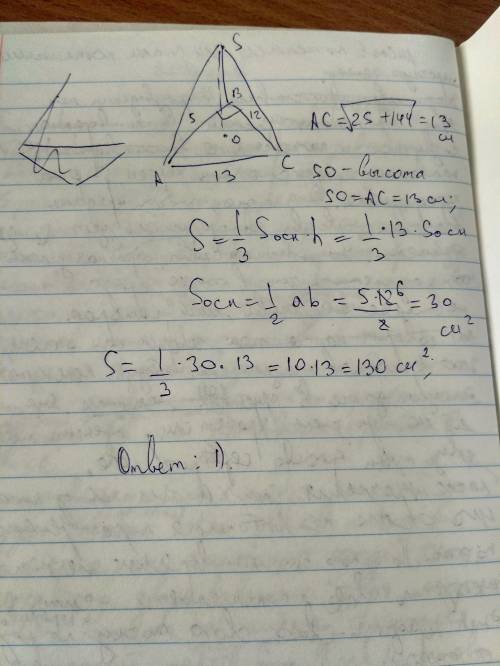 S
B
5
12
O
A
C
13
AC=√25+144=13
см
SO-высота
SO=AC=13см;
S=1/3 Sосн·h=1/3·13·Sосн
Sосн=1/2 ab=5·12⁶/2=30
см²
S=1/3·30·13=10·13=130 см²;
Ответ: D.